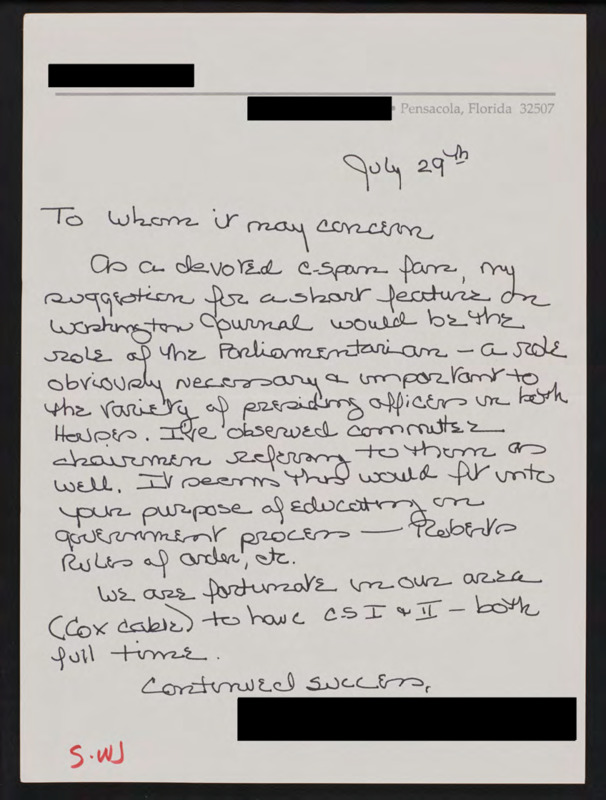 • Pensacola, Florida 32507
July 29th
To whom it may concern
As a devoted c-span fan, my
suggestion for a short feature on
Washington Journal would be the
role of the Parliamentarian – a role
obviously necessary & important to
the variety of presiding officers in both
Houses. I've observed committee
chairmen referring to them as
well. It seems this would fit into
your purpose of educating on
government process — Roberts
Rules of order, etc.
We are fortunate in our area
(Cox cable) to have CS I & II – both
full time.
Continued success,
S.WJ